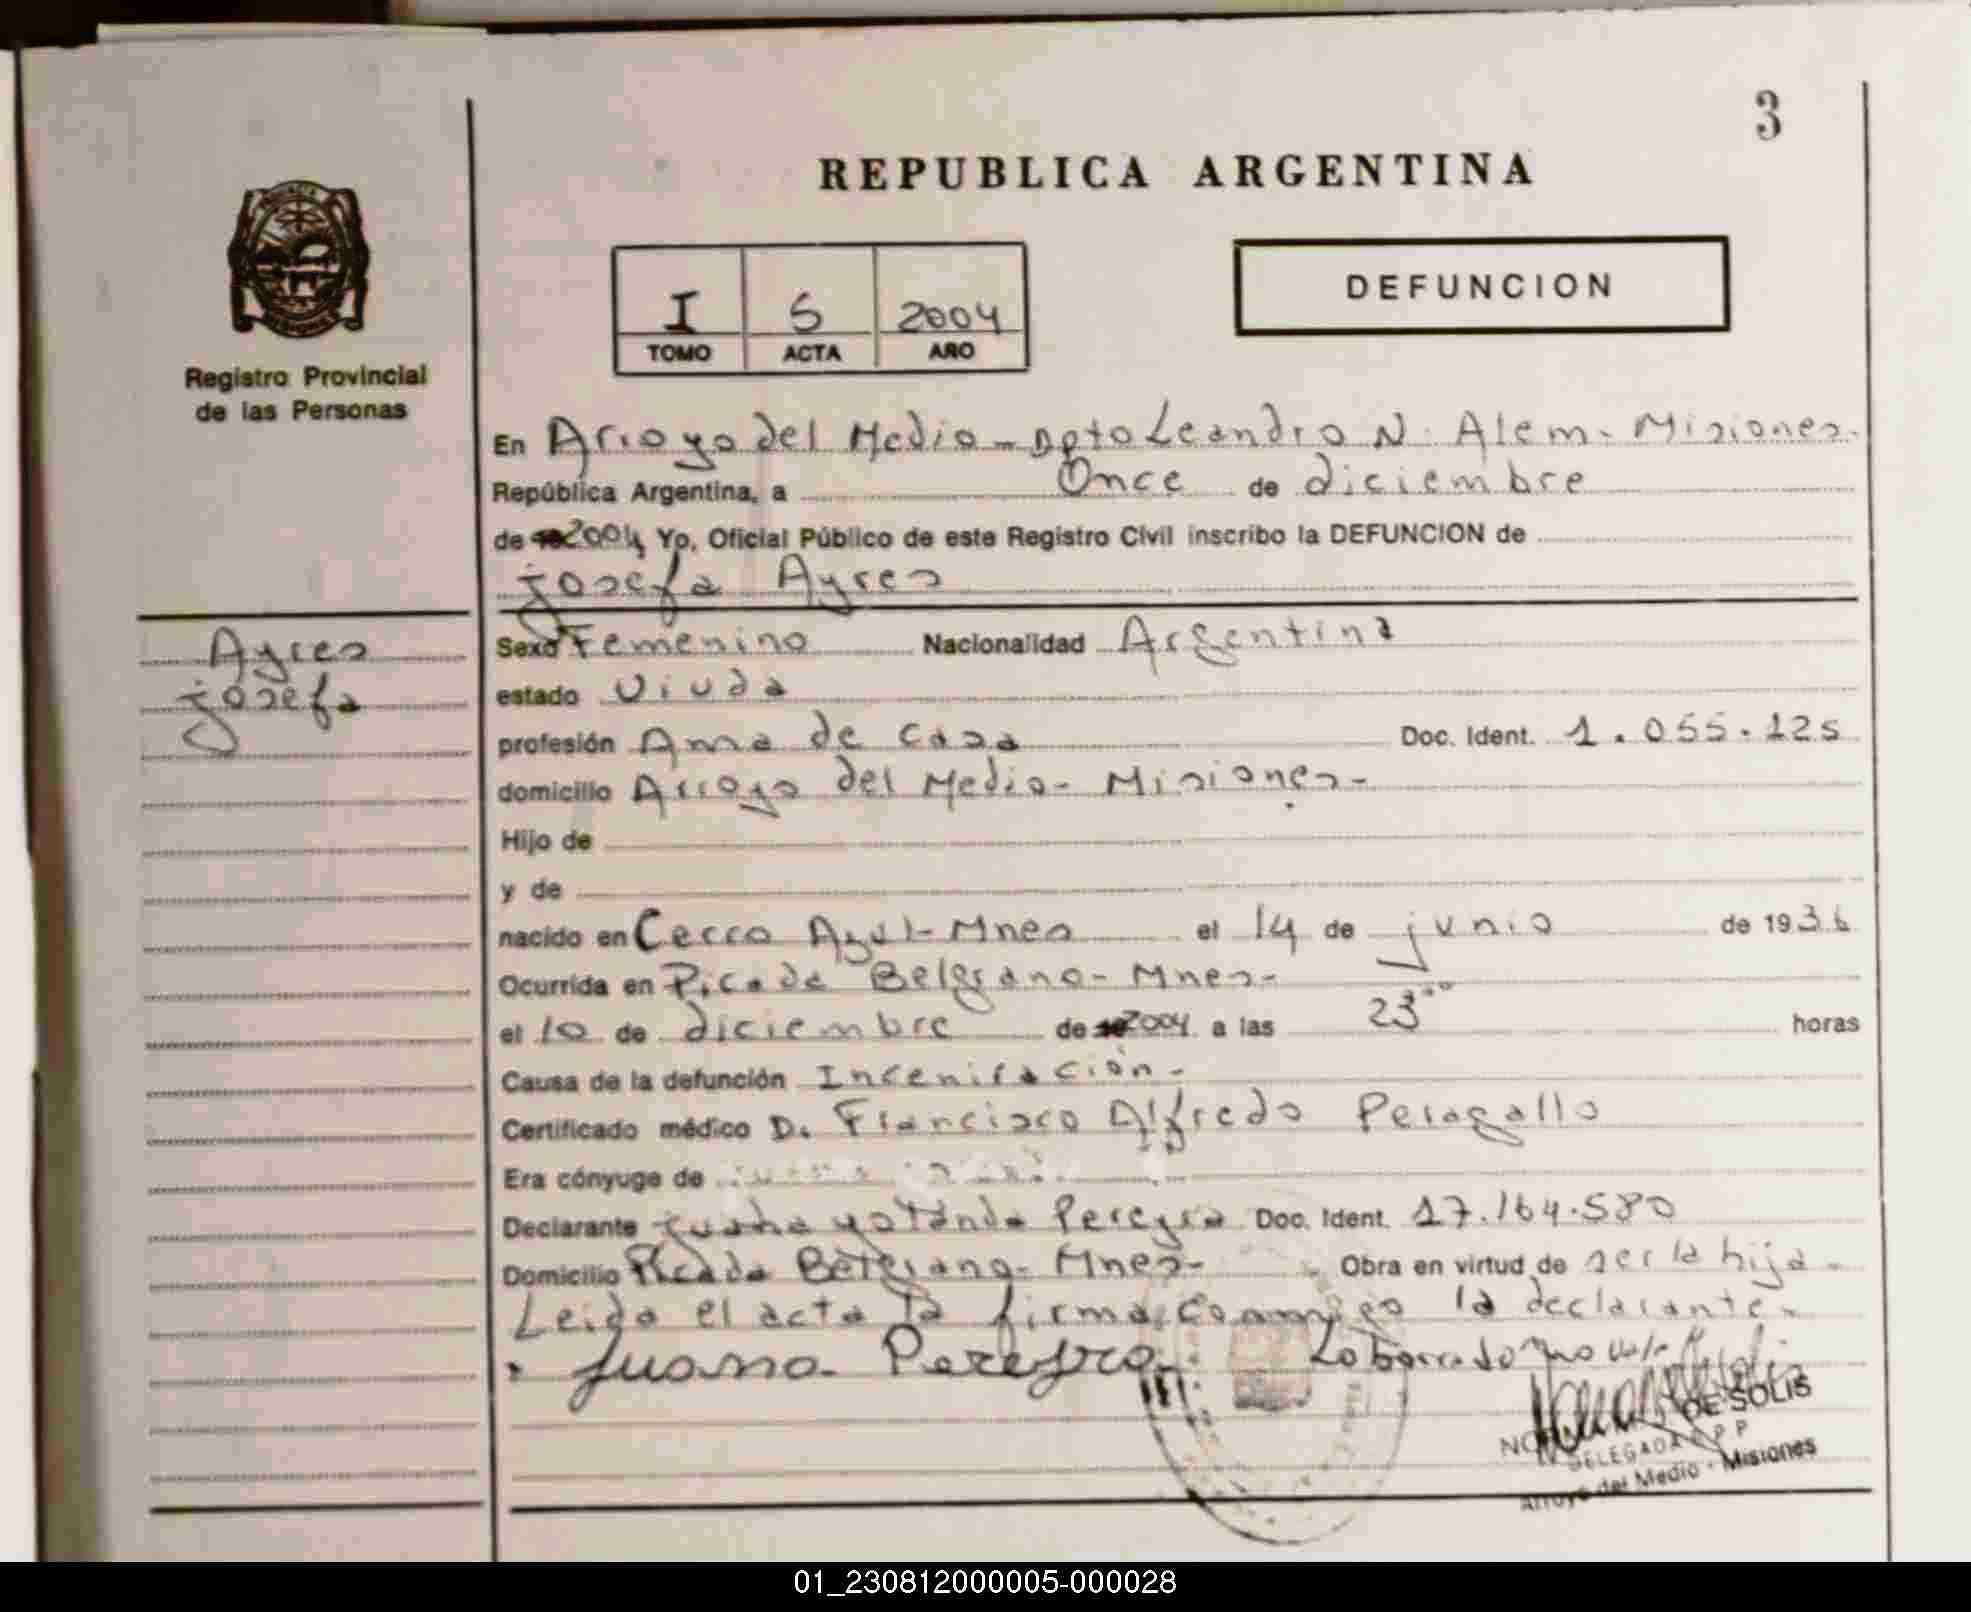 3
REPUBLICA ARGENTINA
Registro Provincial
de las Personas
I 5 2004
TOMO ACTA AÑO
DEFUNCION
En Arroyo del Medio - Dpto Leandro N. Alem - Misiones.
República Argentina, a Once de diciembre
de 2004 Yo, Oficial Público de este Registro Civil inscribo la DEFUNCION de
josefa Ayres
Ayres
josefa
Sexo Femenino Nacionalidad Argentina
estado Viuda
profesión Ama de casa Doc. Ident. 1.055.125
domicilio Arroyo del Medio - Misiones -
Hijo de
y de
nacido en Cerro Azul - Mnes el 14 de junio de 1936
Ocurrida en Picada Belgrano - Mnes -
el 10 de diciembre de 2004 a las 23 horas
Causa de la defunción Inceniración -
Certificado médico D. Francisco Alfredo Peragallo
Era cónyuge de
Declarante juana yolanda Pereyra Doc. Ident. 17.164.580
Domicilio Picada Belgrano - Mnes - Obra en virtud de ser la hija -
Leida el acta la firma conmigo la declarante -
Juana Pereyra Lo borrado no vale
DE SOLIS
DELEGADA R P P
Arroyo del Medio - Misiones
01_230812000005-000028